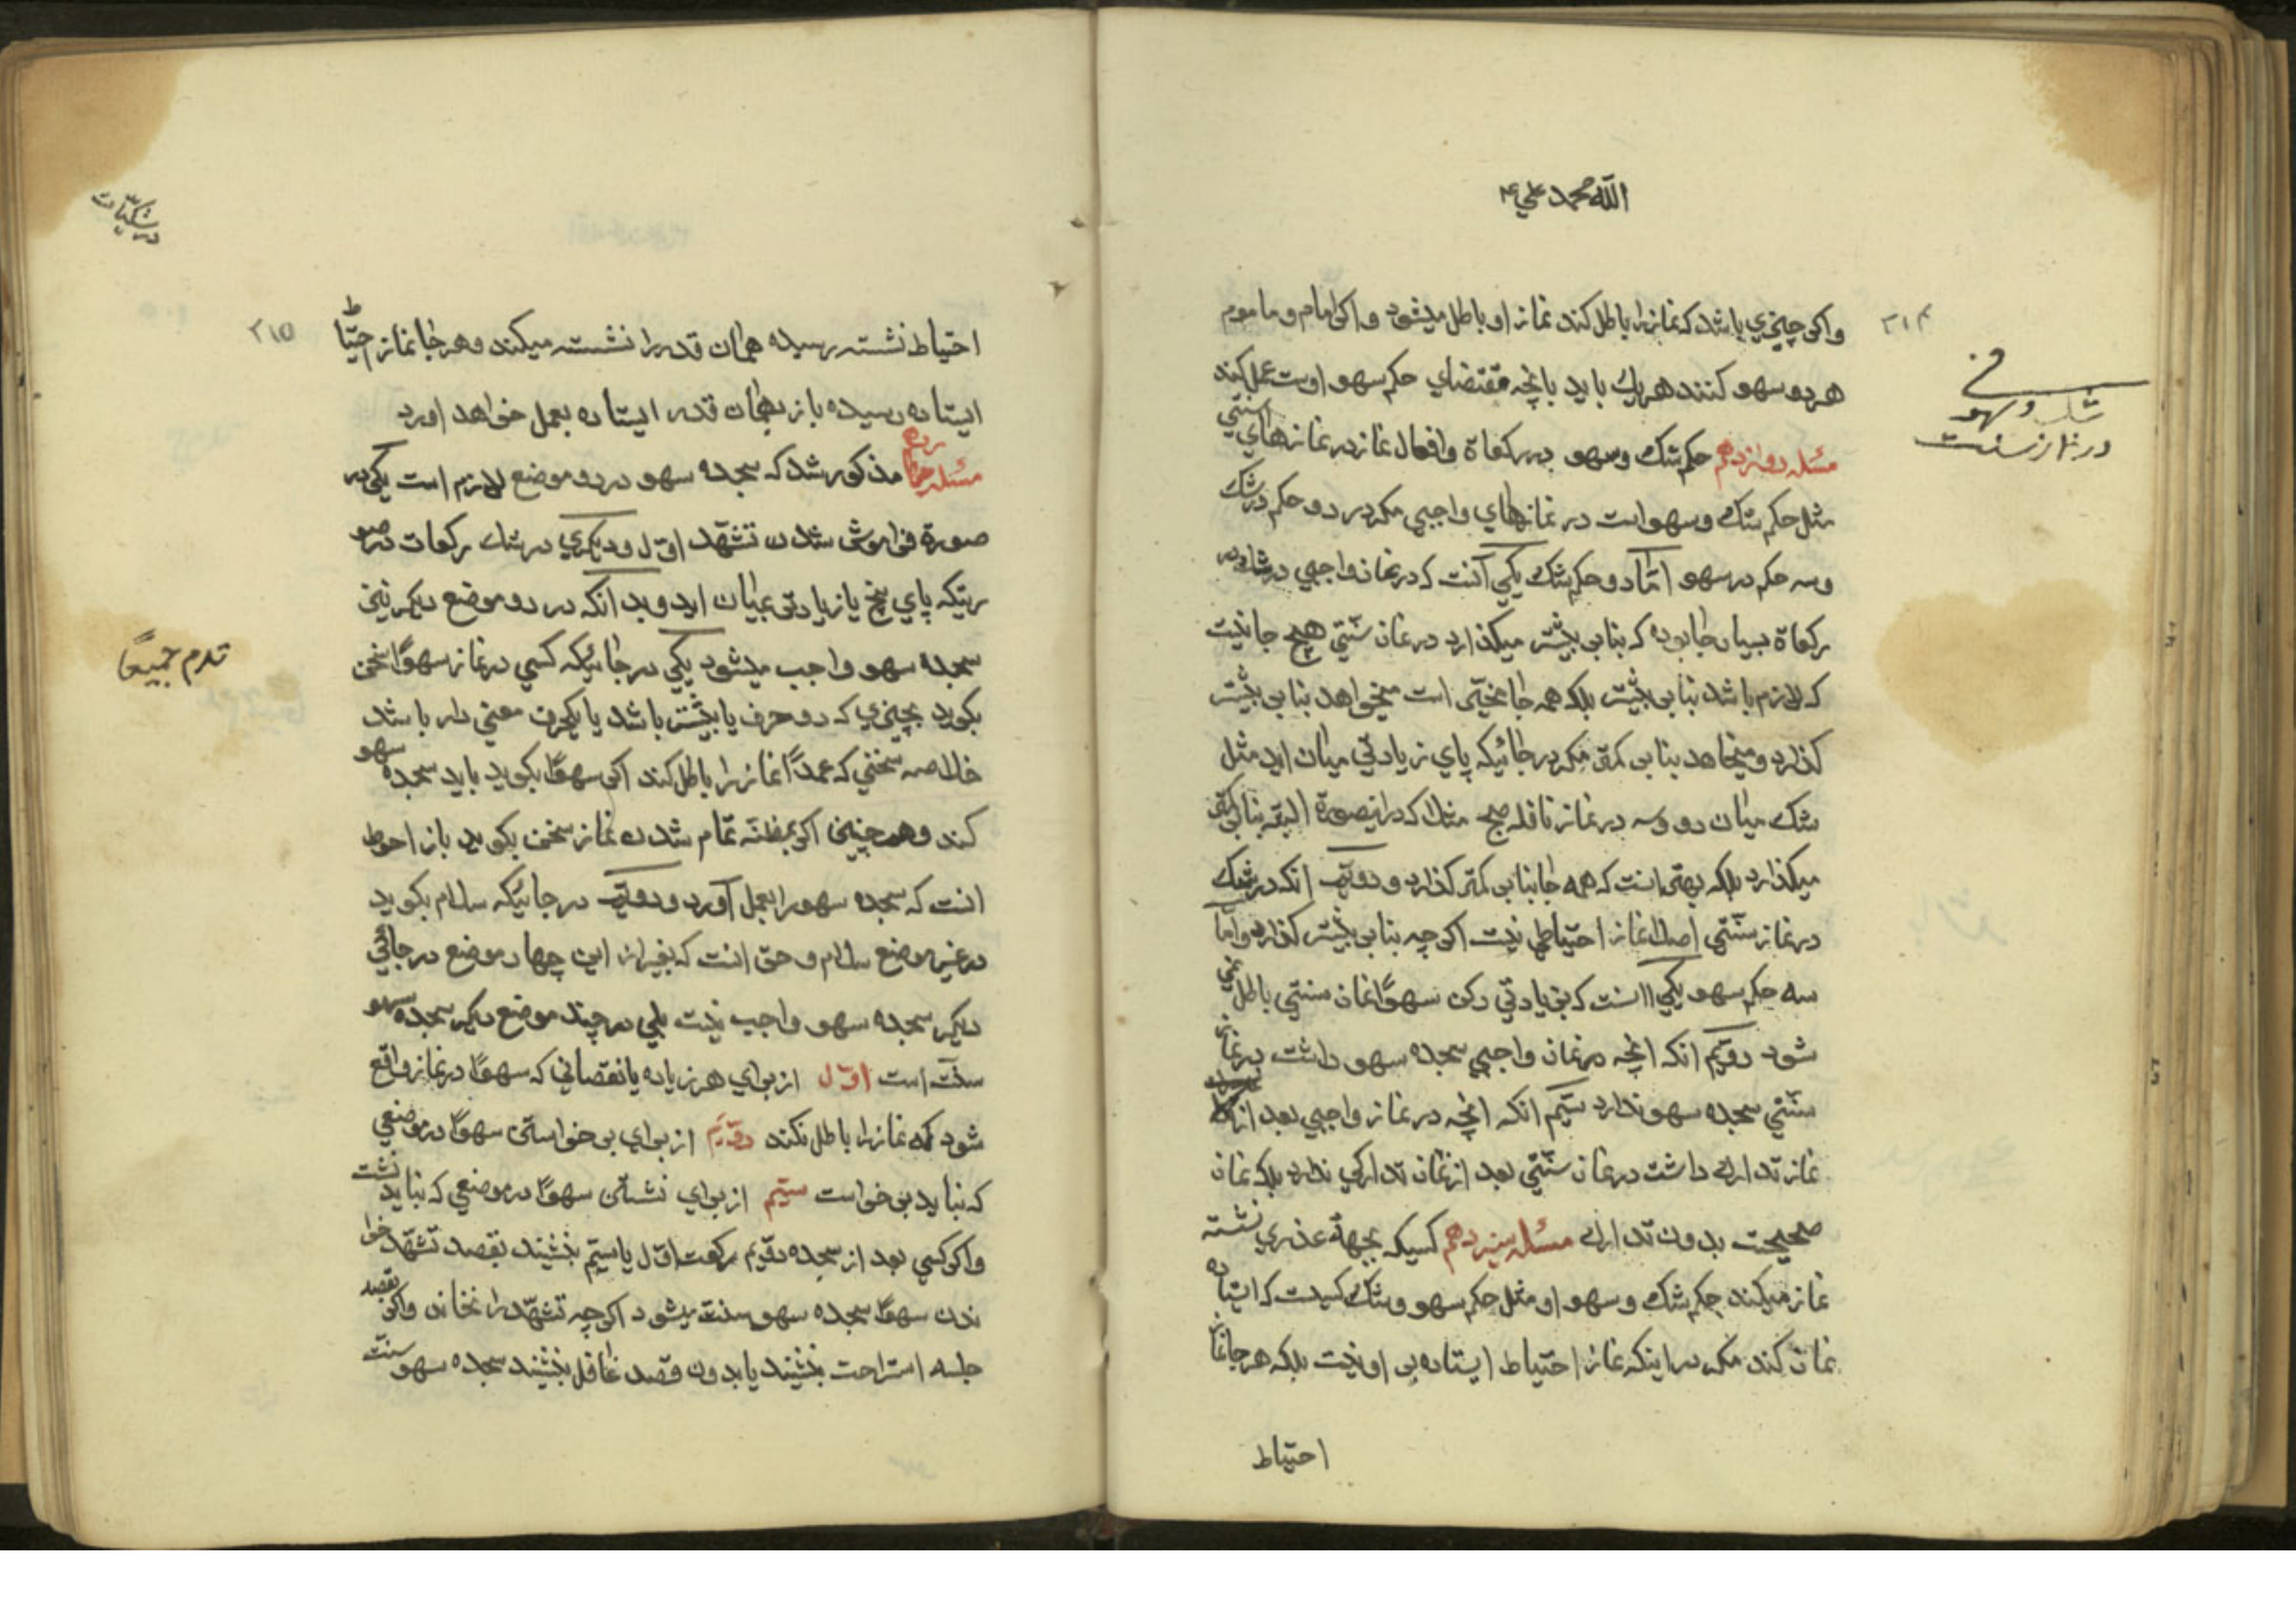 الله محمد علي ۴
۲۱۴
واکر چیزي باشد که نماز را باطل کند نماز او باطل میشود و اکر امام و ماموم
هر دو سهو کنند هر یك باید بانچه مقتضاي حکم سهو اوست عمل کند
مسئله دوازدهم حکم شك وسهو در رکعاة وافعال نماز در نمازهاي سنتي
مثل حکم شك و سهو است در نمازهاي واجبي مکر در دو حکم در شك
وسه حکم در سهو امّا دو حکم شك یکي آنست که در نماز واجبي در شك در
رکعاة بسیار جا بوده که بنا بر بیشتر میکذارد در نماز سنّتي هیچ جا نیست
که لازم باشد بنا بر بیشتر بلکه همه جا مخیّر است میخواهد بنا بر بیشتر
کذارد و میخاهد بنا بر کمتر مکر در جائیکه پاي زیادتي میان اید مثل
شك میان دو وسه در نماز نافله صبح مثلا که در اینصورة البتّه بنا بر کمتر
میکذارد بلکه بهتر انست که همه جا بنا بر کمتر کذارد و دویّم انکه در شك
در نماز سنّتي اصلا نماز احتیاطي نیست اکر چه بنا بر بیشتر کذارد و امّا
سه حکم سهو یکي اانست که بزیادتي رکن سهوًا نماز سنتي باطل نمي
شود دویّم انکه انچه در نماز واجبي سجده سهو داشت در نماز
سنّتي سجده سهو ندارد سیّم انکه انچه در نماز واجبي بعد از
نماز تدارك داشت در نماز سنّتي بعد از نماز تدارکي ندارد بلکه نماز
صحیحست بدون تدارك مسئله سیزدهم کسیکه بجهة عذري نشسته
نماز میکند حکم شك وسهو او مثل حکم سهو وشك کسیست که ایستاده
نماز کند مکر در اینکه نماز احتیاط ایستاده بر او نیست بلکه هر جا نماز
احتیاط
في
شك وسهو
در نماز سنت
در شکیّات
۲۱۵
احتیاط نشسته رسیده همان قدر را نشسته میکند وهر جا نماز احتیاط
ایستاده رسیده باز بهمان قدر ایستاده بعمل خواهد اورد
مسئله چهارده مذکور شد که سجده سهو در دو موضع لازم است یکي در
صورة فراموش شدن تشهّد اوّل و دیکري در شك رکعات در صو
رتیکه پاي پنج یا زیادتر بمیان اید وبدانکه در دو موضع دیکر نیز
سجده سهو واجب میشود یکي در جائیکه کسي در نماز سهوًا سخن
بکوید بچیزي که دو حرف یا بیشتر باشد یا یکحرف معني دار باشد
خلاصه سخني که عمدًا نماز را باطل کند اکر سهوًا بکوید باید سجده سهو
کند وهمچنین اکر بمظنّه تمام شدن نماز سخن بکوید باز احوط
انست که سجده سهو را بعمل آورد و دویّم در جائیکه سلام بکوید
در غیر موضع سلام و حق انست که بغیر از این چهار موضع در جائي
دیکر سجده سهو واجب نیست بلي در چند موضع دیکر سجده سهو
سنّت است اوّل از براي هر زیاده یا نقصاني که سهوًا در نماز واقع
شود که نماز را باطل نکند دویّم از براي بر خواستن سهوًا در موضعي
که نباید بر خواست سیّم از براي نشستن سهوًا در موضعي که نباید نشست
واکر کسي بعد از سجده دویّم رکعت اوّل یا سیّم بنشیند بقصد تشهّد خوا
ندن سهوًا سجده سهو سنّت میشود اکر چه تشهّد را نخاند واکر بقصد
جلسه استراحت بنشیند یا بدون قصد غافل بنشیند سجده سهو سنّت